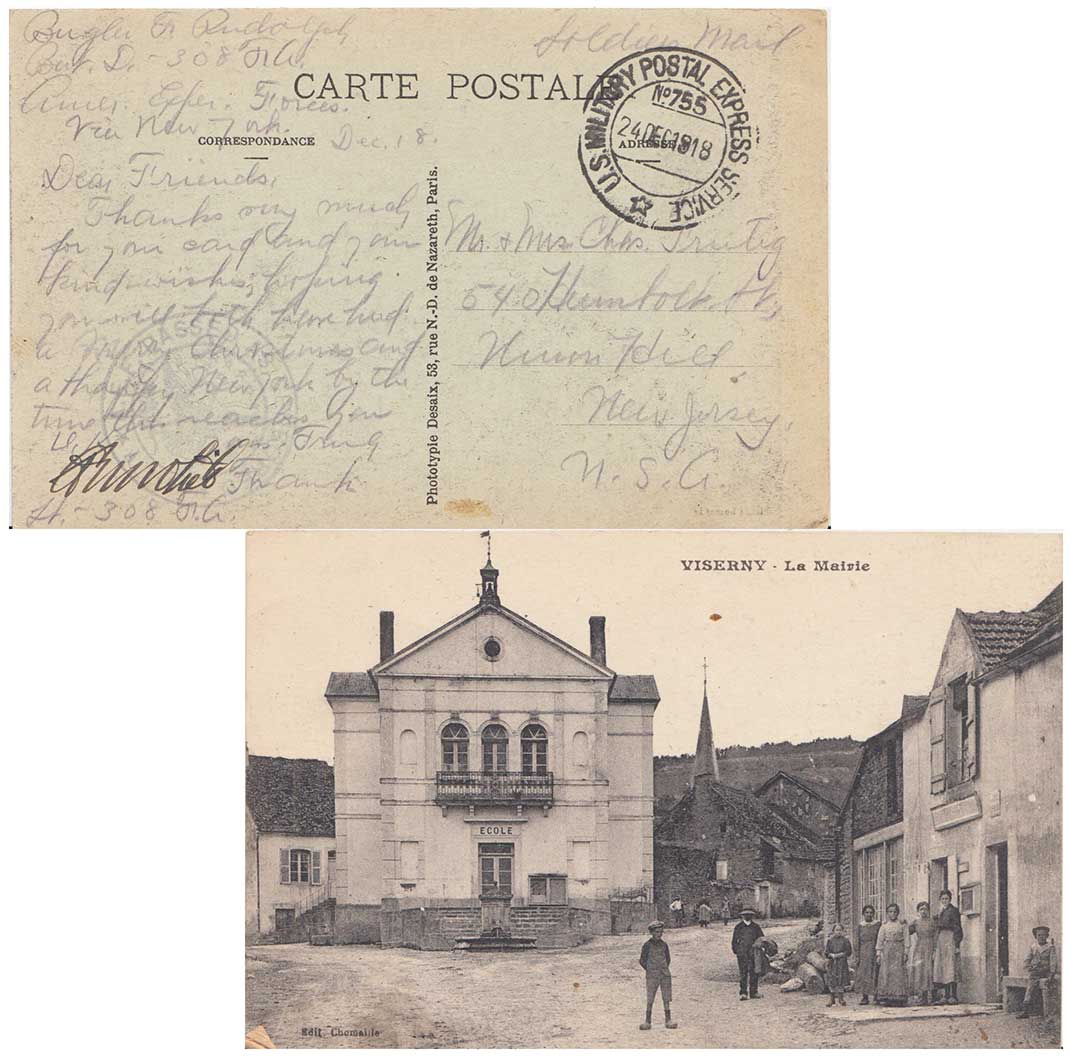 Bugler F. Rudolph
Bat. D. - 308 F.A.
Amer. Exper. Forces.
Via New York.
Soldiers Mail
CARTE POSTALE
U.S. MILITARY POSTAL EXPRESS SERVICE
No 755
24 DEC 1918
CORRESPONDANCE
ADRESSE
Dec. 18.
Dear Friends,
Thanks very much
for your card and your
kind wishes, hoping
you will both have had
a Merry Christmas and
a Happy New York by the
time this reaches you
Frank
Lt. - 308 F.A.
Phototypie Desaix, 53, rue N.-D. de Nazareth, Paris.
Mr. & Mrs. Chas.
540
Union Hill
New Jersey.
U. S. A.
VISERNY - La Mairie
ECOLE
Edit. Chemaille